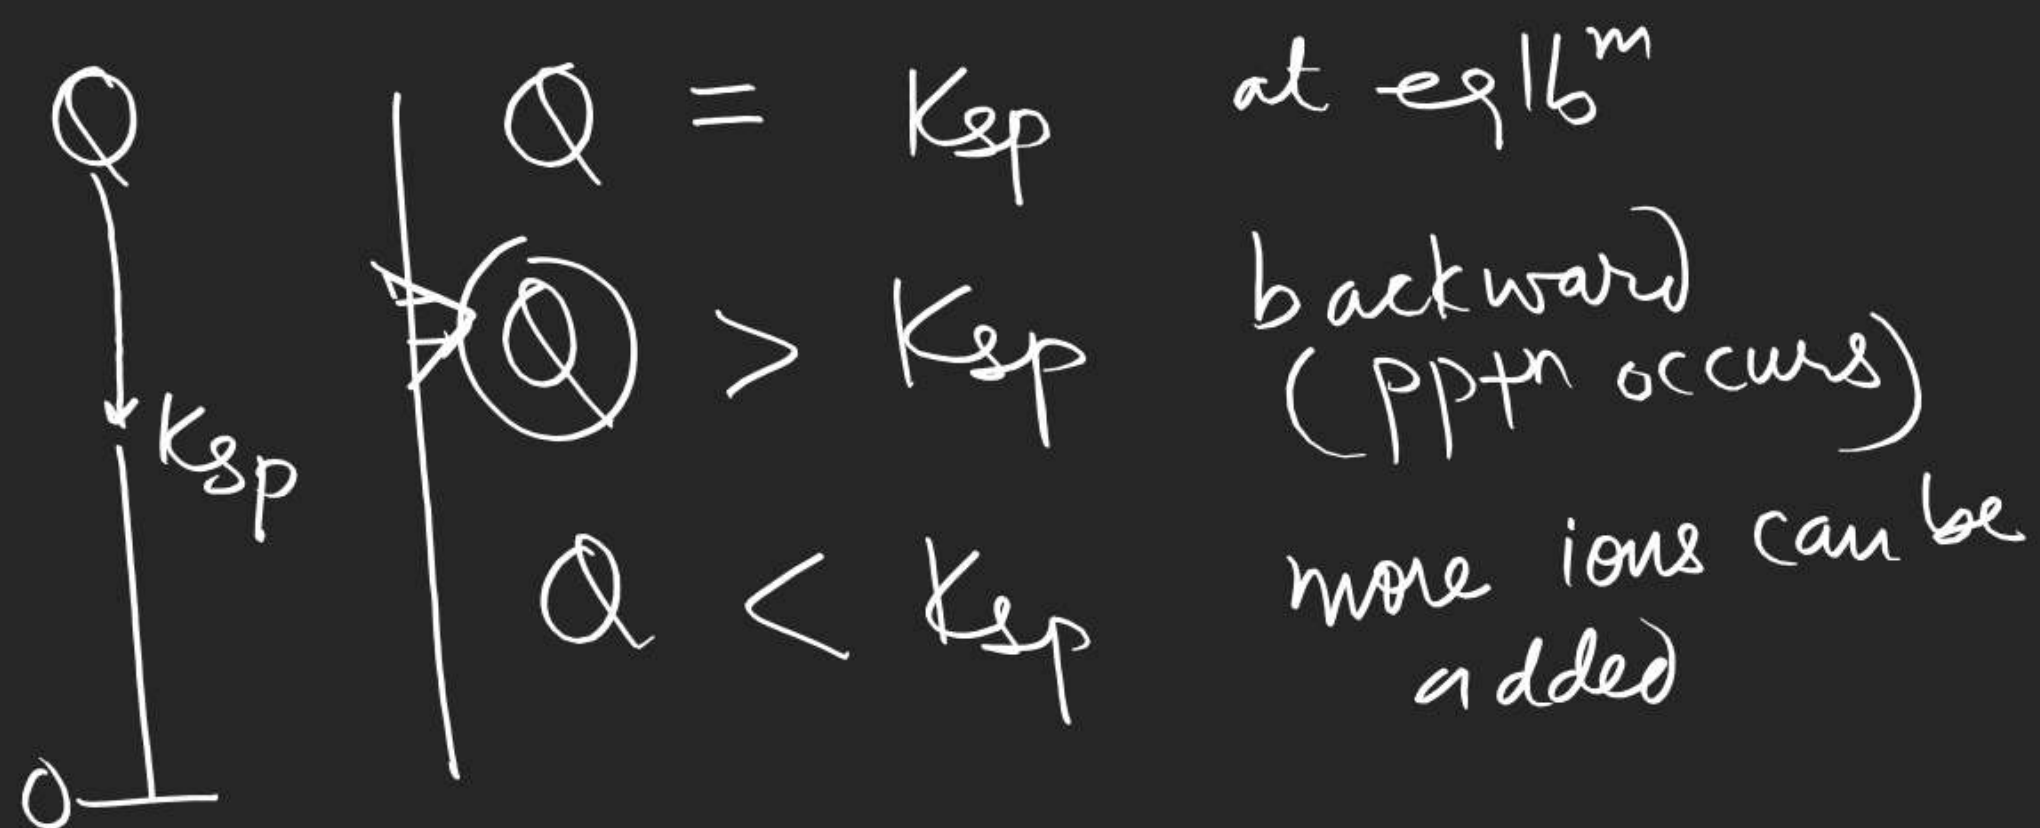 Q
Ksp
0
Q = Ksp at eqlbᵐ
Q > Ksp backward
(pptn occurs)
Q < Ksp more ions can be
added